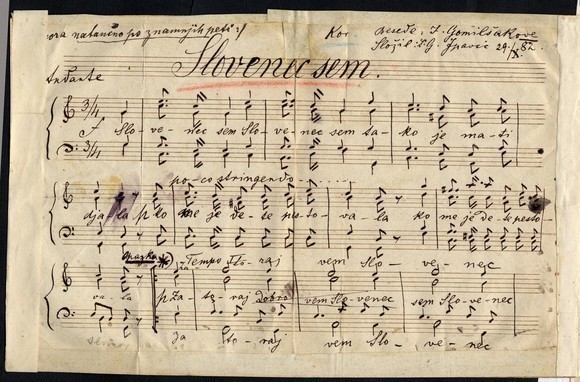 natančeno po znamnjih peti :/ Kor Besede, J. Gomilšakove
Složil: G. Ipavic 29./X. 82.
Slovenec sem.
Andante
f Slo-ve-nec sem Slo-ve-nec sem ta-ko je ma-ti
po-co stringendo......
dja-la k-lo me je de-te pesto-va-la ko me je de-te pesto-
Tempo sto-raj vem Slo-ve-nec
va-la p za-to-raj dobro vem Slo-venec sem Slo-ve-nec
za to-raj vem Slo-ve-nec